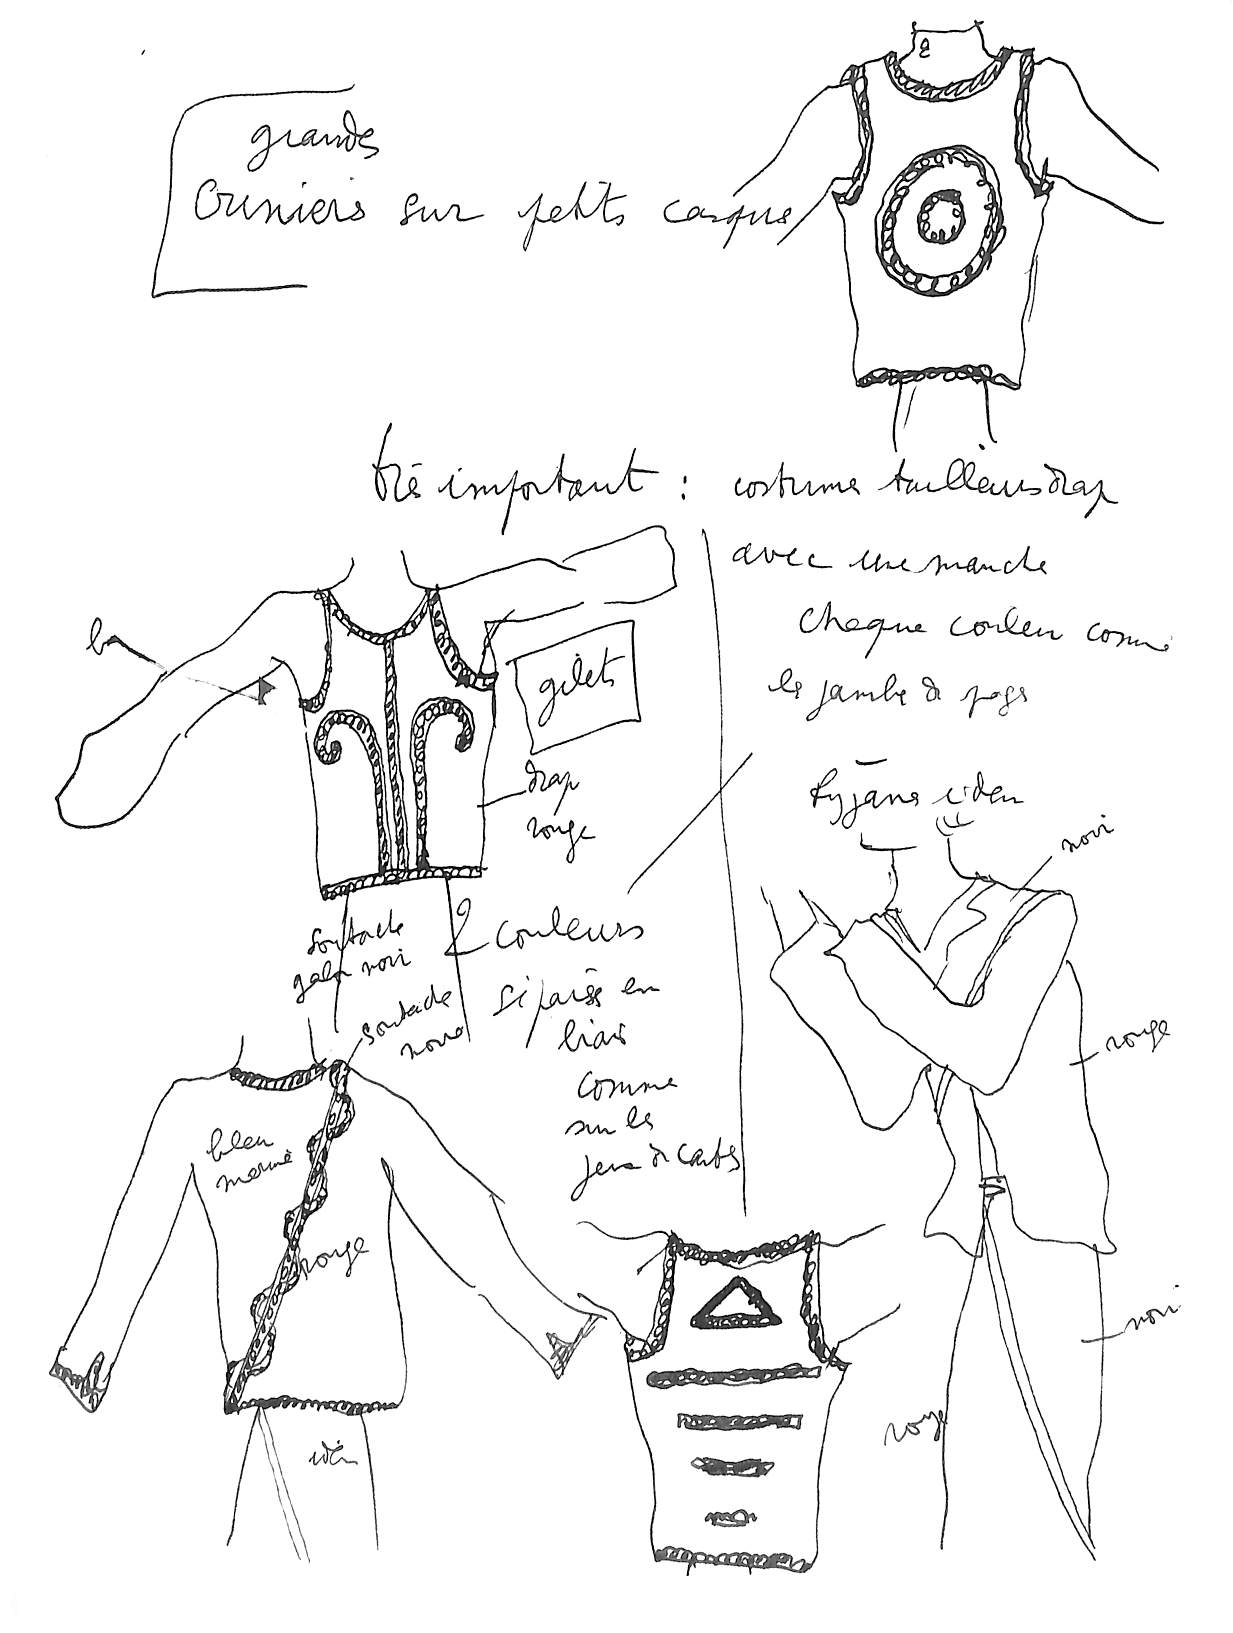 grands
Cimiers sur petits casques
très important : costumes tailleurs drap
avec une manche
chaque couleur comme
les jambes de pages
Pyjama idem
gilets
drap
rouge
noir
rouge
noir
rouge
soutache
galon noir
soutache
noire
2 couleurs
séparés en
biais
comme
sur les
jeux de cartes
bleu
marine
rouge
idem